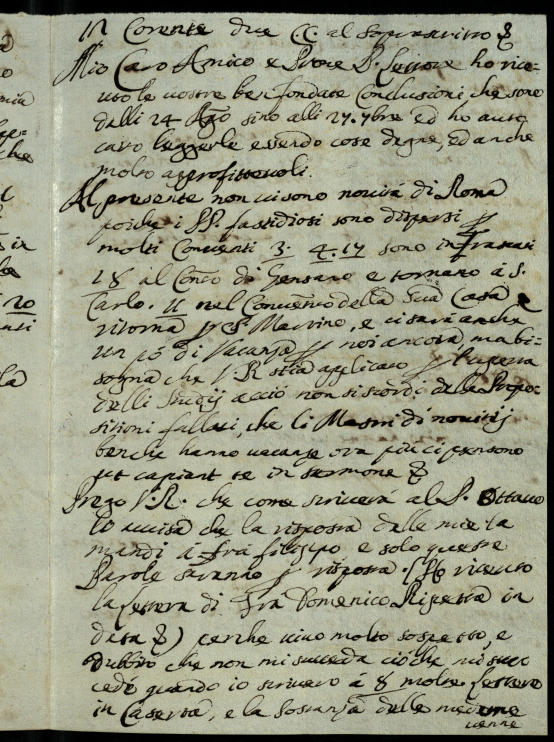 in Corente due CC. al sopra scritto &
Mio Caro Amico e Prõre P. Lettore ho rice-
uto le vostre ben fondate Conclusioni, che sono
dalli 24 Agõ sino alli 27. 7bre ed ho auto
caro leggerle essendo cose degne, ed anche
molto approfittevoli.
Al presente non vi sono novità di Roma
poiche i PP. fastidiosi sono dispersi p
molti Conventi 3. 4. 17 sono in Frascati
18 al Conto di Gensano e tornano á S.
Carlo. 11 nel Convento della Scala Casa
ritorna Marino, e ci sarà anche
un pó di Vacanza p noi ancora, ma bi-
sogna che V. R. stia applicato p
delli Studij acció non si scordi delle Propo-
sitioni fallaci, che li Mastri di novitij
benche hanno vacanze ora piu ci pensono
ut capiant te in sermone &
Prego V. R. che come scriverà al P. Ottavo
lo avvisa che la risposta delle mie la
mandi a frà filippo e solo queste
Parole saranno p risposta. (Hó riceuto
la lettera di Frà Domenico Ripetta in
data &) perche vivo molto sospetto, e
dubbito che non mi succeda cio che mi suc
cedé quando io scrivevo á 8 molte lettere
in Caserta, e la sostanza delle medeme
venne